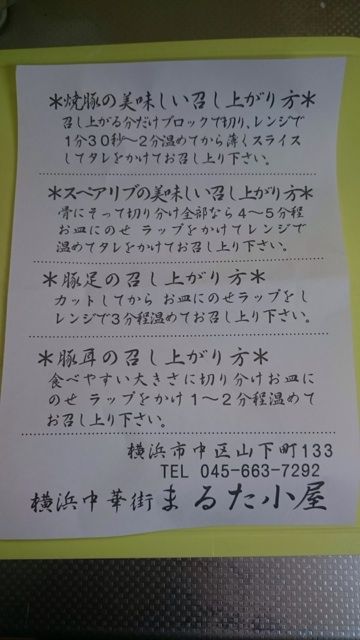 ＊焼豚の美味しい召し上がり方＊
召し上がる分だけブロックで切り、レンジで
1分30秒〜2分温めてから薄くスライス
してタレをかけてお召し上り下さい。
＊スペアリブの美味しい召し上がり方＊
骨にそって切り分け全部なら4〜5分程
お皿にのせ ラップをかけてレンジで
温めてタレをかけてお召し上り下さい。
＊豚足の召し上がり方＊
カットしてから お皿にのせラップをし
レンジで3分程温めてお召し上り下さい。
＊豚耳の召し上がり方＊
食べやすい大きさに切り分けお皿に
のせ ラップをかけ1〜2分程温めて
お召し上り下さい。
横浜市中区山下町133
TEL 045-663-7292
横浜中華街まるた小屋